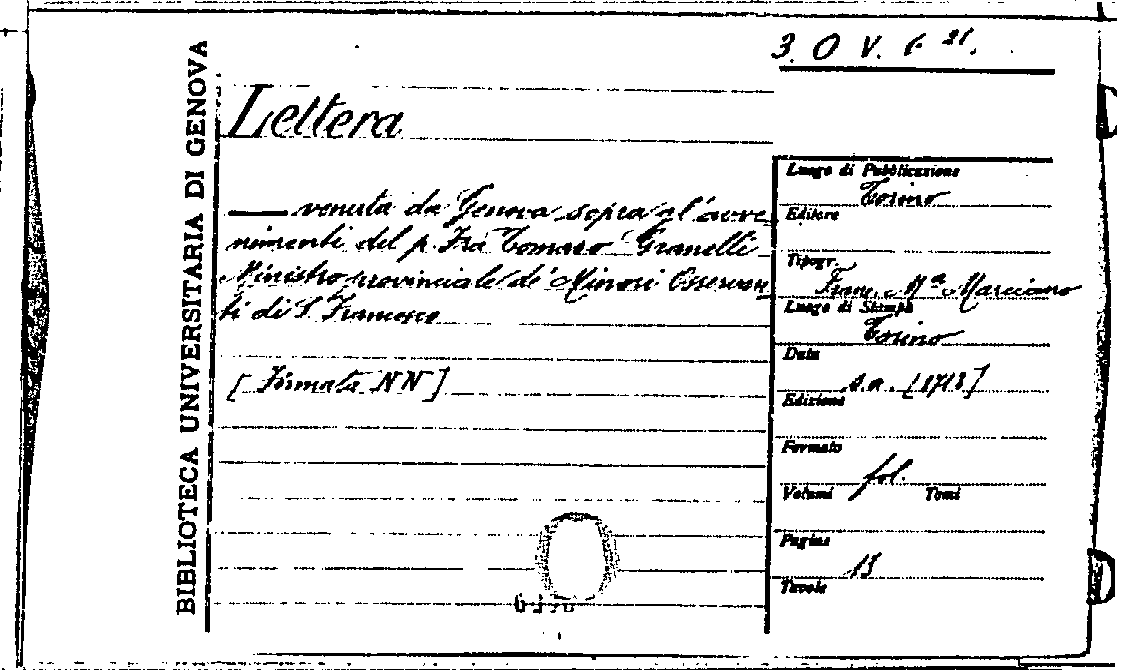 3. O V. 6 21.
BIBLIOTECA UNIVERSITARIA DI GENOVA
Lettera
—— venuta da Genova sopra gl'avve
nimenti del p. Fra Tomaso Granelli
Ministro provinciale de' Minori Osservan
ti di S. Francesco
[Firmata NN]
Luogo di Pubblicazione
Torino
Editore
Tipogr.
Franc. Mª Marciano
Luogo di Stampa
Torino
Data
s.a. [1713]
Edizione
Formato
fol.
Volumi Tomi
Pagine
Tavole